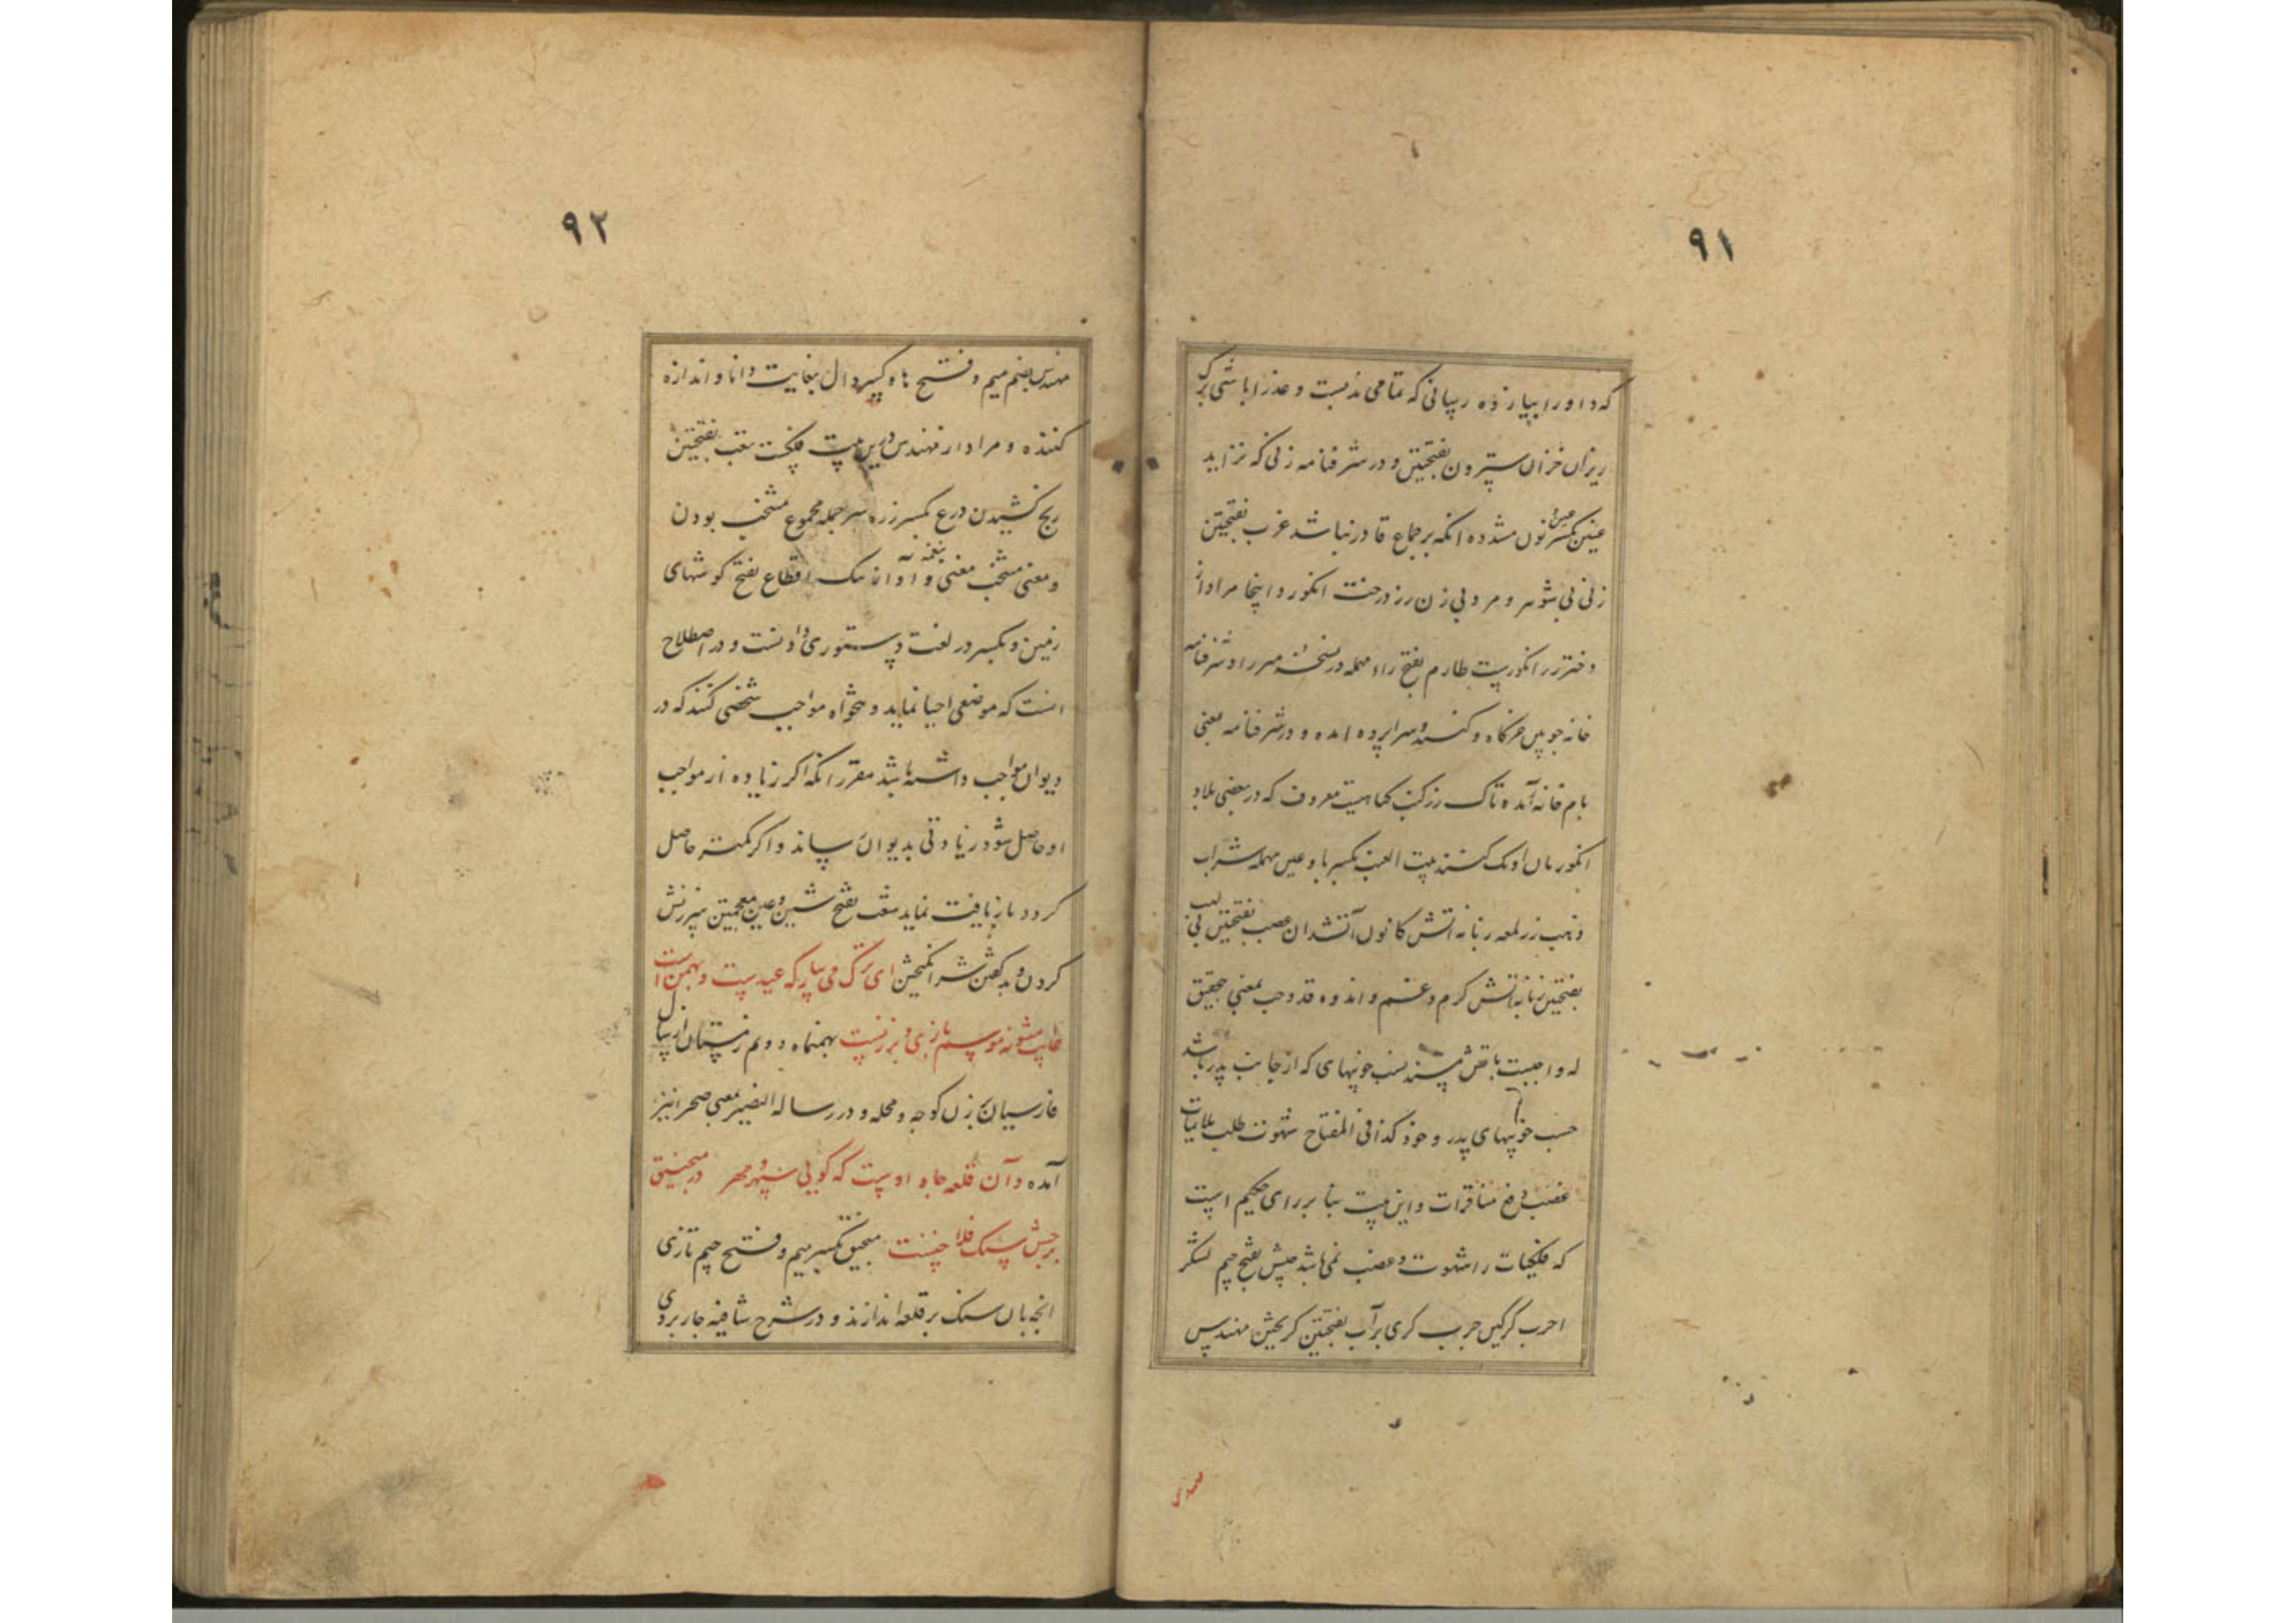 ۹۱
که او را بپیازده رسانی که تمامی مذ بست و عذرا باشی برک
ریزان خزان سترون بفتحتین و در شرفنامه زنی که نزاید
عنین بکسر عین و نون مشدده انکه بر جماع قادر نباشد عزب بفتحتین
زنی بی شوهر و مرد بی زن رز درخت انکور و اینجا مراد از
دختر رز انکوریست طارم بفتح راء مهمله در نسخه میرزا و شرفنامه
خانه چوبین خرکاه و کنبد و سراپرده امده و در شرفنامه بمعنی
بام خانه آمده تاک رز کنب کیاهیست معروف که در بعضی بلاد
انکور بان اونک کنند بیت العنب بکسر با و عین مهمله شراب
ذهب زر لمعه زبانه اتش کانون آتشدان عصب بفتحتین پی لهب
بفتحتین زبانه اتش کرم و غم و اندوه قد وجب بمعنی تحقیق
له واجبست ناقص پسند نسب خوبیهای که از جانب پدر باشد
حسب خوبیهای پدر و خود کذا فی المفتاح شهوت طلب ملایمات
غضب دفع منافرات و این بیت بنا بر رای حکیم است
که فلکیات را شهوت و غضب نمی باشد جیش بفتح جیم لشکر
اجرب کرکین جرب کری برآب بفتحتین کریختن مهندس
۹۲
مهندس بضم میم و فتح ها و کسر دال بغایت دانا و اندازه
کننده و مراد از مهندس درین بیت فلکست تعب بفتحتین
رنج کشیدن درع بکسر زره سر جمله مجموع منتخب بودن
و معنی منتخب معنی و آواز نغمه اقطاع بفتح کوشهای
زمین و بکسر در لغت دستوری دادنست و در اصطلاح
انست که موضعی احیا نماید و تنخواه مواجب شخصی کنند که در
دیوان مواجب داشته باشد مقرر انکه اکر زیاده از مواجب
او حاصل شود زیادتی بدیوان رساند و اکر کمتر حاصل
کردد بازیافت نماید شغب بفتح شین و غین معجمتین سرزنش
کردن و بد کفتن شر انکیختن ای ترک می بیار که عیدست و بهمن است
غایب مشو نه موسم بازی و برزنست بهمنماه دویم زمستان از سال
فارسیان برزن کوچه و محله و در رساله النصیر بمعنی صحرا نیز
آمده و آن قلعه جاه اوست که کویی سپهر و مهر در منجنیق
برجش سنک فلاخنست منجنیق بکسر میم و فتح جیم تازی
انچه بان سنک بر قلعه اندازند و در شرح شافیه جاربردی